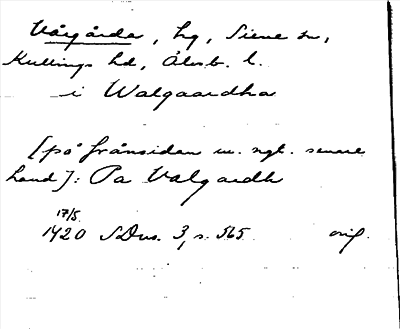 Vårgårda, hg, Siene sn,
Kullings hd, Älvsb. l.
i Walgaardha
[på frånsidan m. ngt. senare
hand]: Pa Valgardh
17/5
1420 SDns. 3, s. 565 orig.